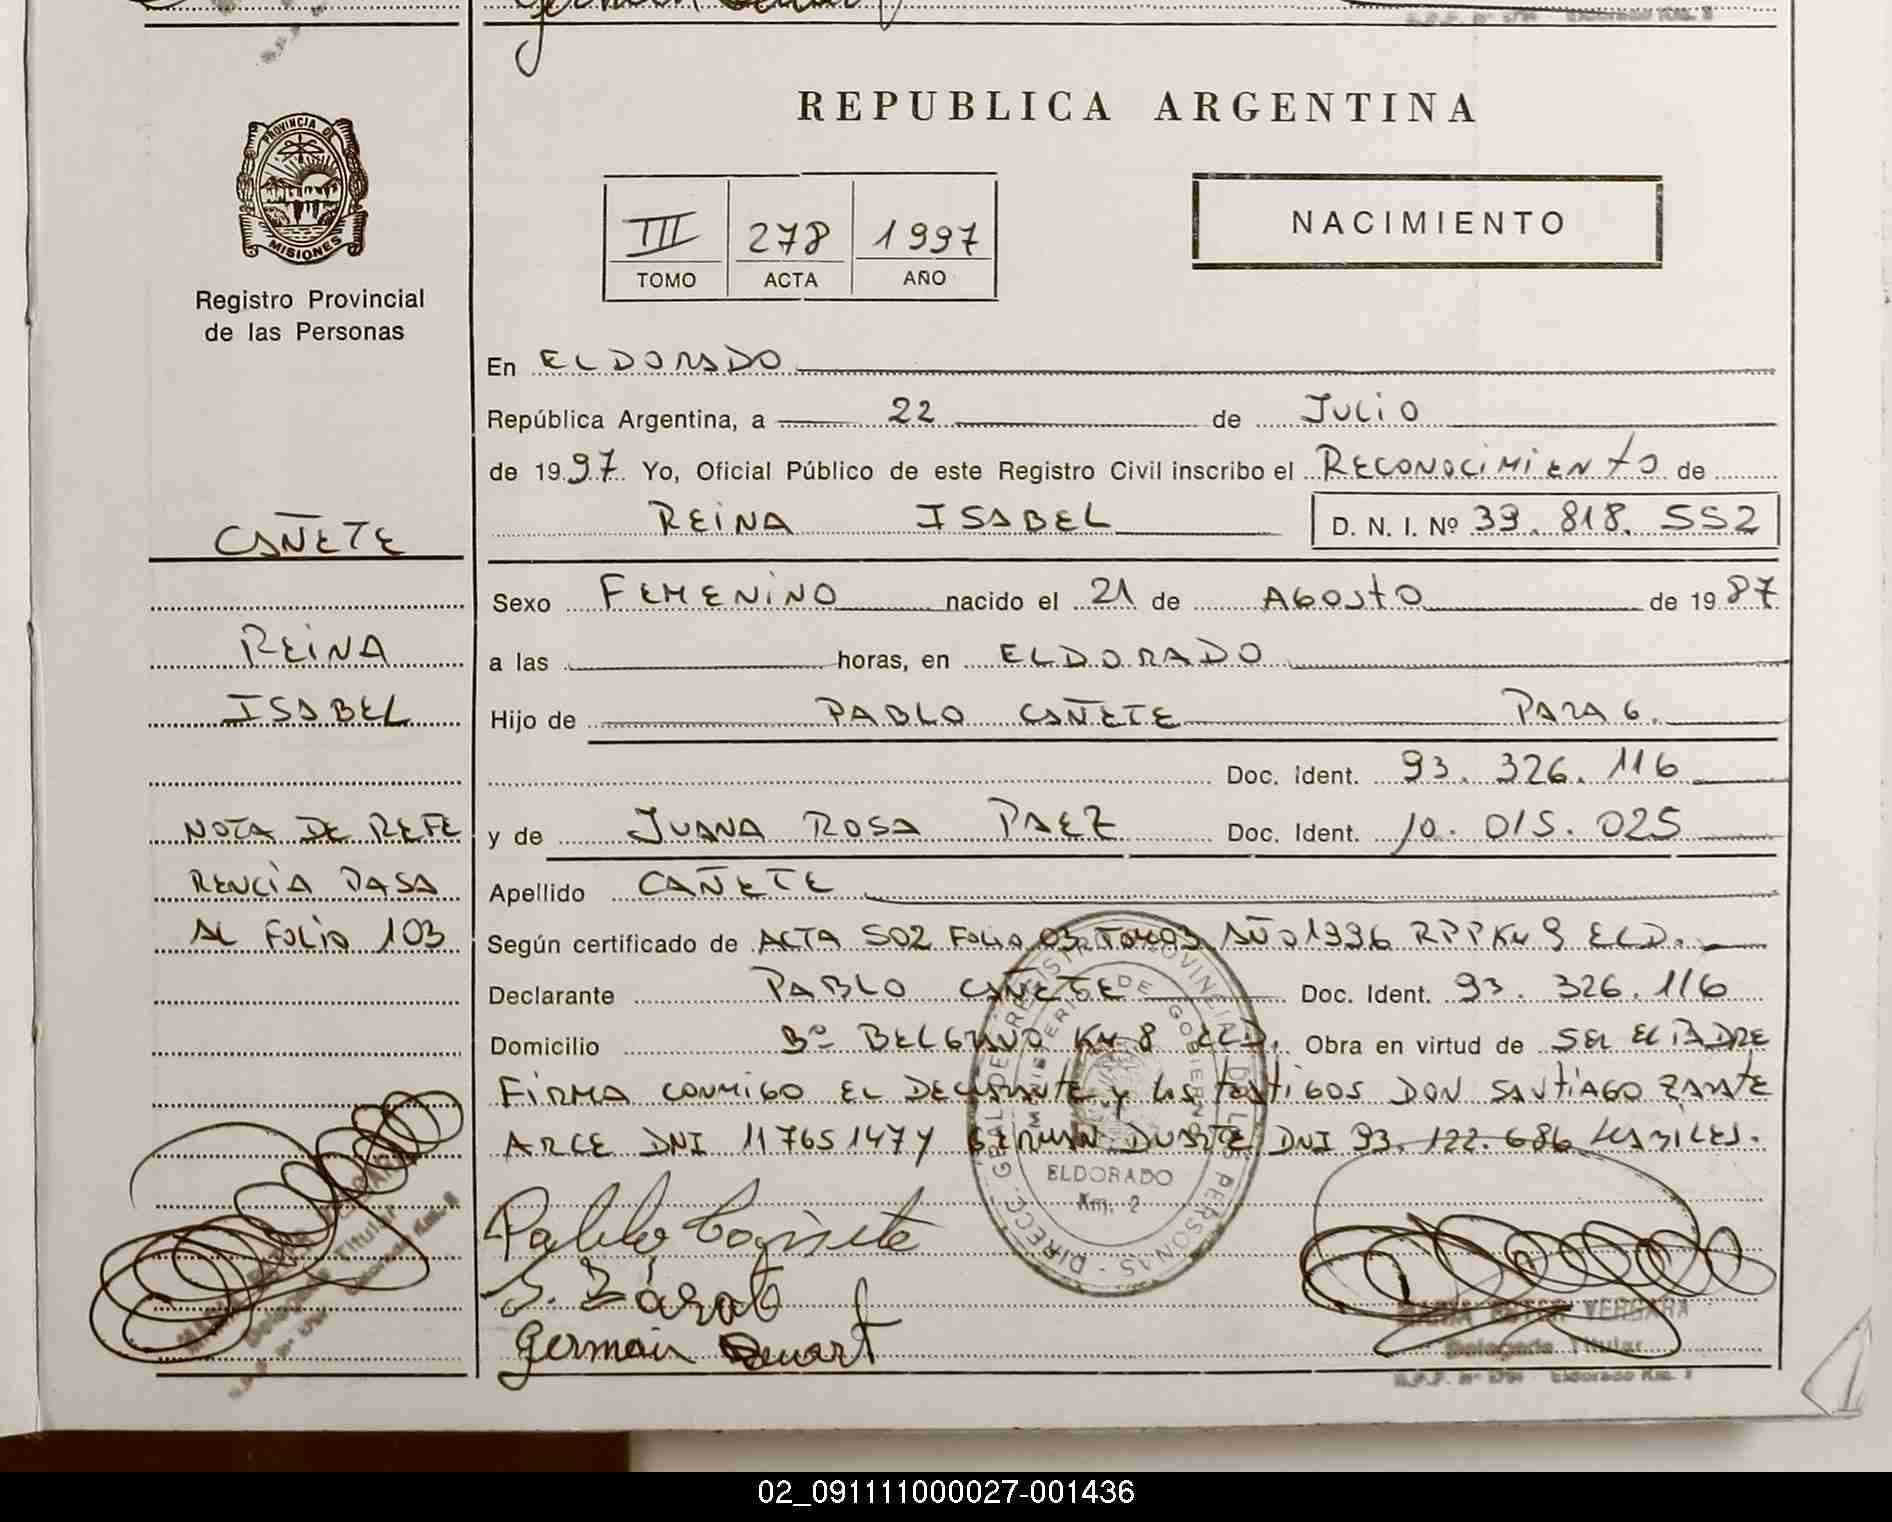 PROVINCIA DE
MISIONES
Registro Provincial
de las Personas
REPUBLICA ARGENTINA
III 278 1997
TOMO ACTA AÑO
NACIMIENTO
En ELDORADO
República Argentina, a 22 de JULIO
de 1997 Yo, Oficial Público de este Registro Civil inscribo el RECONOCIMIENTO de
REINA ISABEL D. N. I. Nº 39.818.552
Sexo FEMENINO nacido el 21 de AGOSTO de 1987
a las horas, en ELDORADO
Hijo de PABLO CAÑETE PARAG.
Doc. Ident. 93.326.116
y de JUANA ROSA PAEZ Doc. Ident. 10.015.025
Apellido CAÑETE
Según certificado de ACTA 502 FOLIO 03 TOMO3 AÑO 1996 RPP KM 9 ELD.
Declarante PABLO CAÑETE Doc. Ident. 93.326.116
Domicilio Bº BELGRANO KM 8 ELD. Obra en virtud de SER EL PADRE
FIRMA CONMIGO EL DECLARANTE y los testigos DON SANTIAGO ZARATE
ARCE DNI 11765147 Y GERMAN DUARTE DNI 93.122.686 HABILES.
CAÑETE
REINA
ISABEL
NOTA DE REFE
RENCIA PASA
AL FOLIO 103
ELDORADO
Km. 2
Pablo Cañete
S. Zárate
German Duart
MARIA ESTER VERGARA
Delegada Titular
02_091111000027-001436